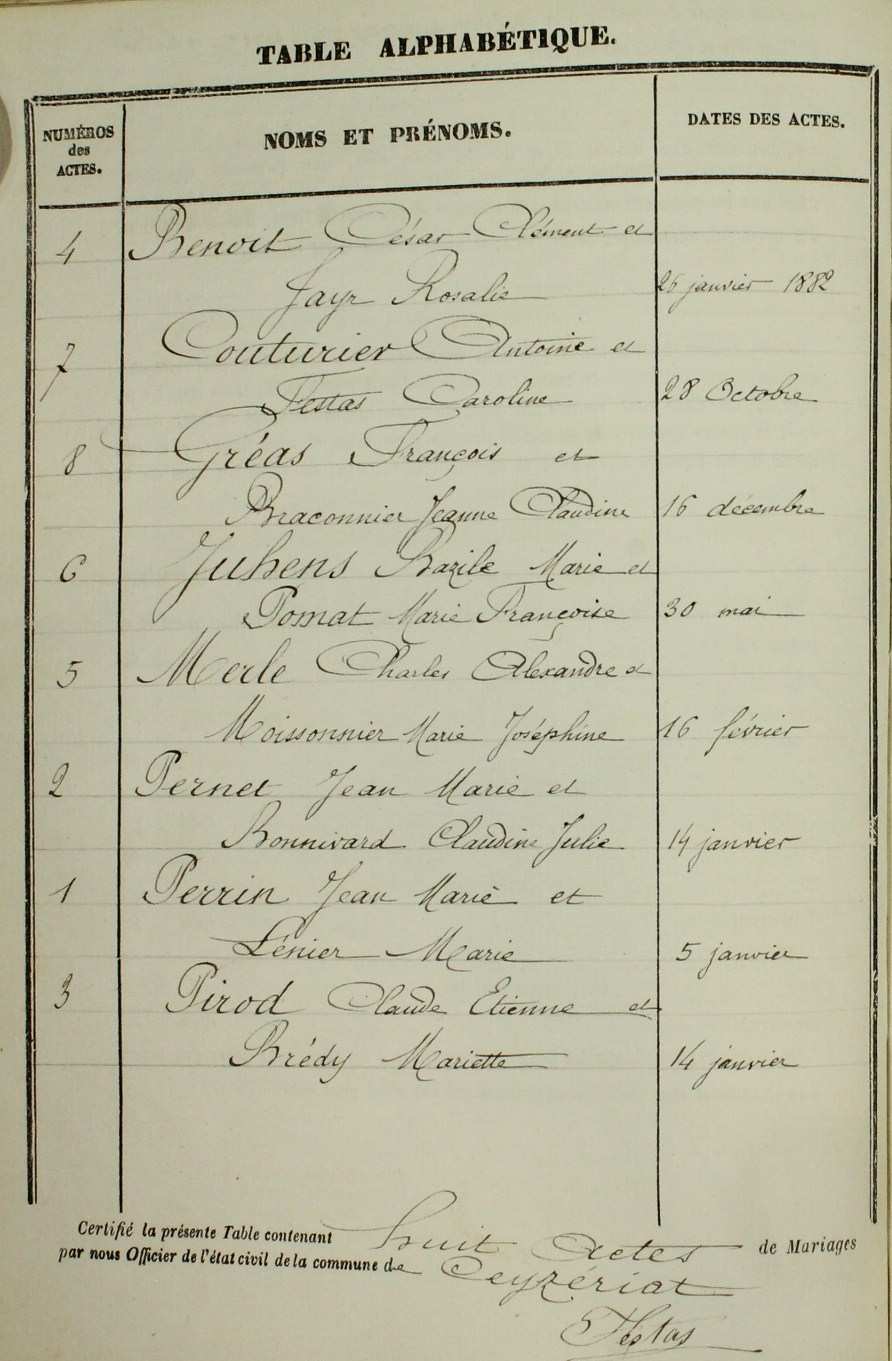 TABLE ALPHABÉTIQUE.
NUMÉROS des ACTES. NOMS ET PRÉNOMS. DATES DES ACTES.
4 Benoit César Clément et
Jayr Rosalie 26 janvier 1882
7 Couturier Antoine et
Testas Caroline 28 Octobre
8 Gréas François et
Braconnier Jeanne Claudine 16 décembre
6 Juhens Bazile Marie et
Pomat Marie Françoise 30 mai
5 Merle Charles Alexandre et
Moissonnier Marie Joséphine 16 février
2 Pernet Jean Marie et
Bonnivard Claudine Julie 14 janvier
1 Perrin Jean Marie et
Lénier Marie 5 janvier
3 Pirod Claude Etienne et
Brédy Mariette 14 janvier
Certifié la présente Table contenant huit Actes de Mariages
par nous Officier de l'état civil de la commune de Ceyzériat